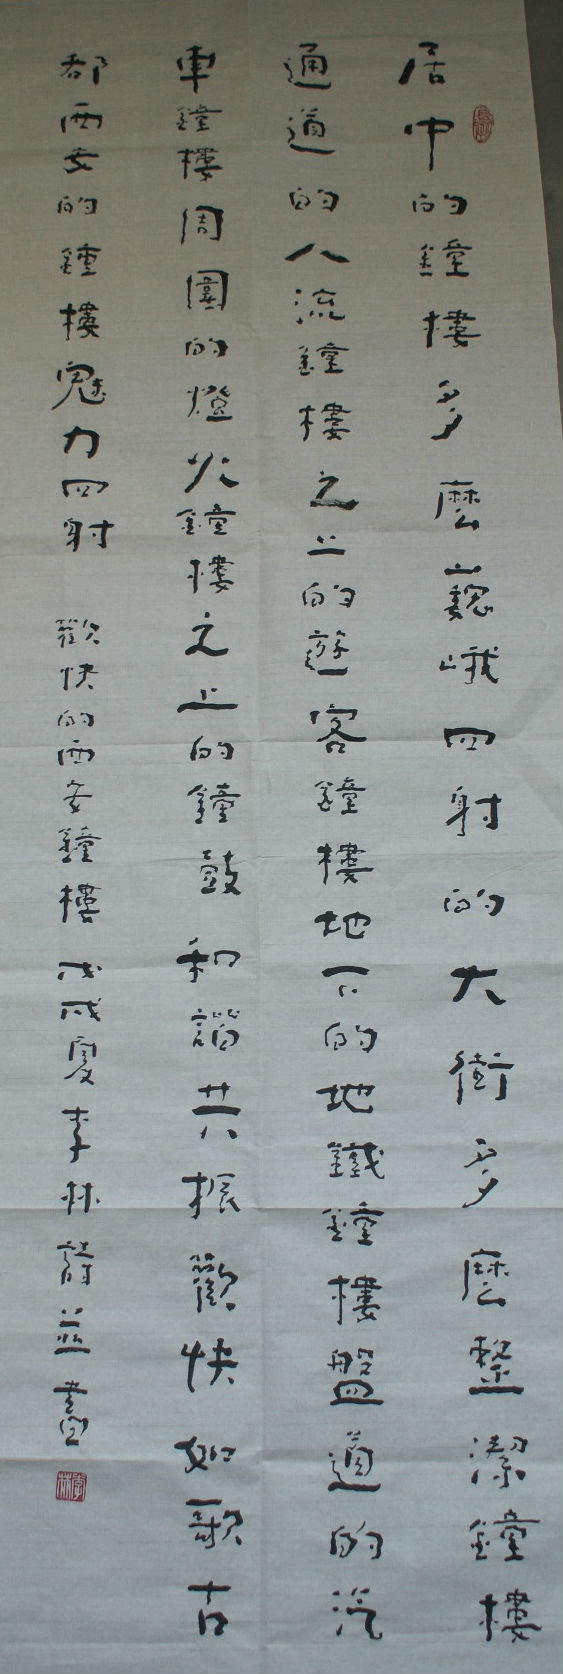 居中的鐘樓多麼巍峨四射的大街多麼整潔鐘樓
通道的人流鐘樓之上的遊客鐘樓地下的地鐵鐘樓盤道的汽
車鐘樓周圍的燈火鐘樓之上的鐘鼓和諧共振歡快如歌古
都西安的鐘樓魅力四射 歡快的西安鐘樓 戊戌夏李林詩並書